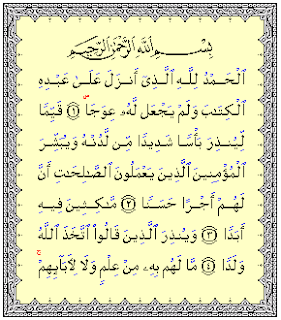 بِسْمِ ٱللَّهِ ٱلرَّحْمَٰنِ ٱلرَّحِيمِ
ٱلْحَمْدُ لِلَّهِ ٱلَّذِىٓ أَنزَلَ عَلَىٰ عَبْدِهِ
ٱلْكِتَٰبَ وَلَمْ يَجْعَل لَّهُۥ عِوَجَاۜ ۝١ قَيِّمًا
لِّيُنذِرَ بَأْسًا شَدِيدًا مِّن لَّدُنْهُ وَيُبَشِّرَ
ٱلْمُؤْمِنِينَ ٱلَّذِينَ يَعْمَلُونَ ٱلصَّٰلِحَٰتِ أَنَّ
لَهُمْ أَجْرًا حَسَنًا ۝٢ مَّٰكِثِينَ فِيهِ
أَبَدًا ۝٣ وَيُنذِرَ ٱلَّذِينَ قَالُوا۟ ٱتَّخَذَ ٱللَّهُ
وَلَدًا ۝٤ مَّا لَهُم بِهِۦ مِنْ عِلْمٍ وَلَا لِءَابَآئِهِمْۚ